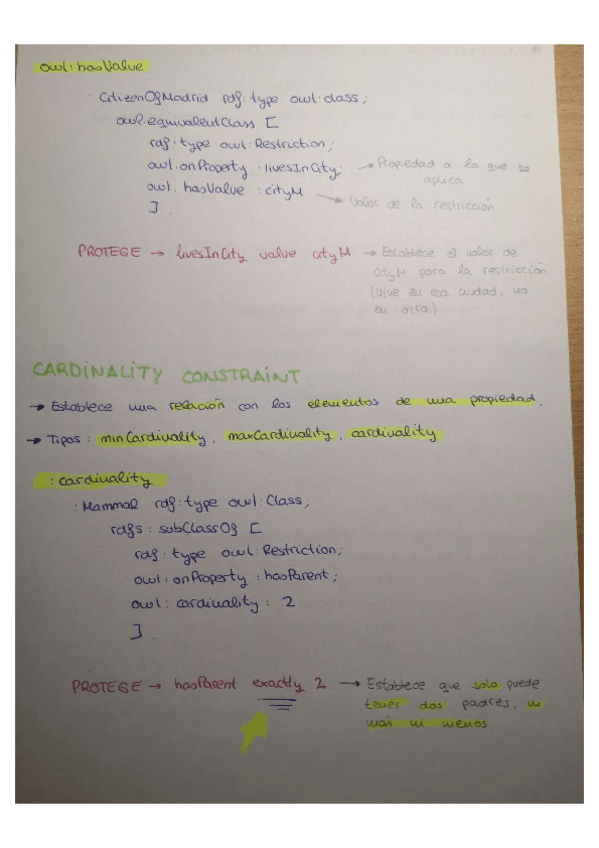 owl:hasValue
:CitizenOfMadrid rdf:type owl:class;
owl:equivalentClass [
rdf:type owl:Restriction;
owl:onProperty :livesInCity; → Propiedad a la que se
aplica
owl:hasValue :cityM
→ Valor de la restricción
].
PROTEGE → livesInCity value cityM → Establece el valor de
cityM para la restricción
(Vive en esa ciudad, no
en otra)
CARDINALITY CONSTRAINT
→ Establece una relación con los elementos de una propiedad.
→ Tipos: minCardinality, maxCardinality, cardinality
:cardinality
:Mammal rdf:type owl:Class;
rdfs:subClassOf [
rdf:type owl:Restriction;
owl:onProperty :hasParent;
owl:cardinality: 2
].
PROTEGE → hasParent exactly 2 → Establece que solo puede
tener dos padres, ni
más ni menos